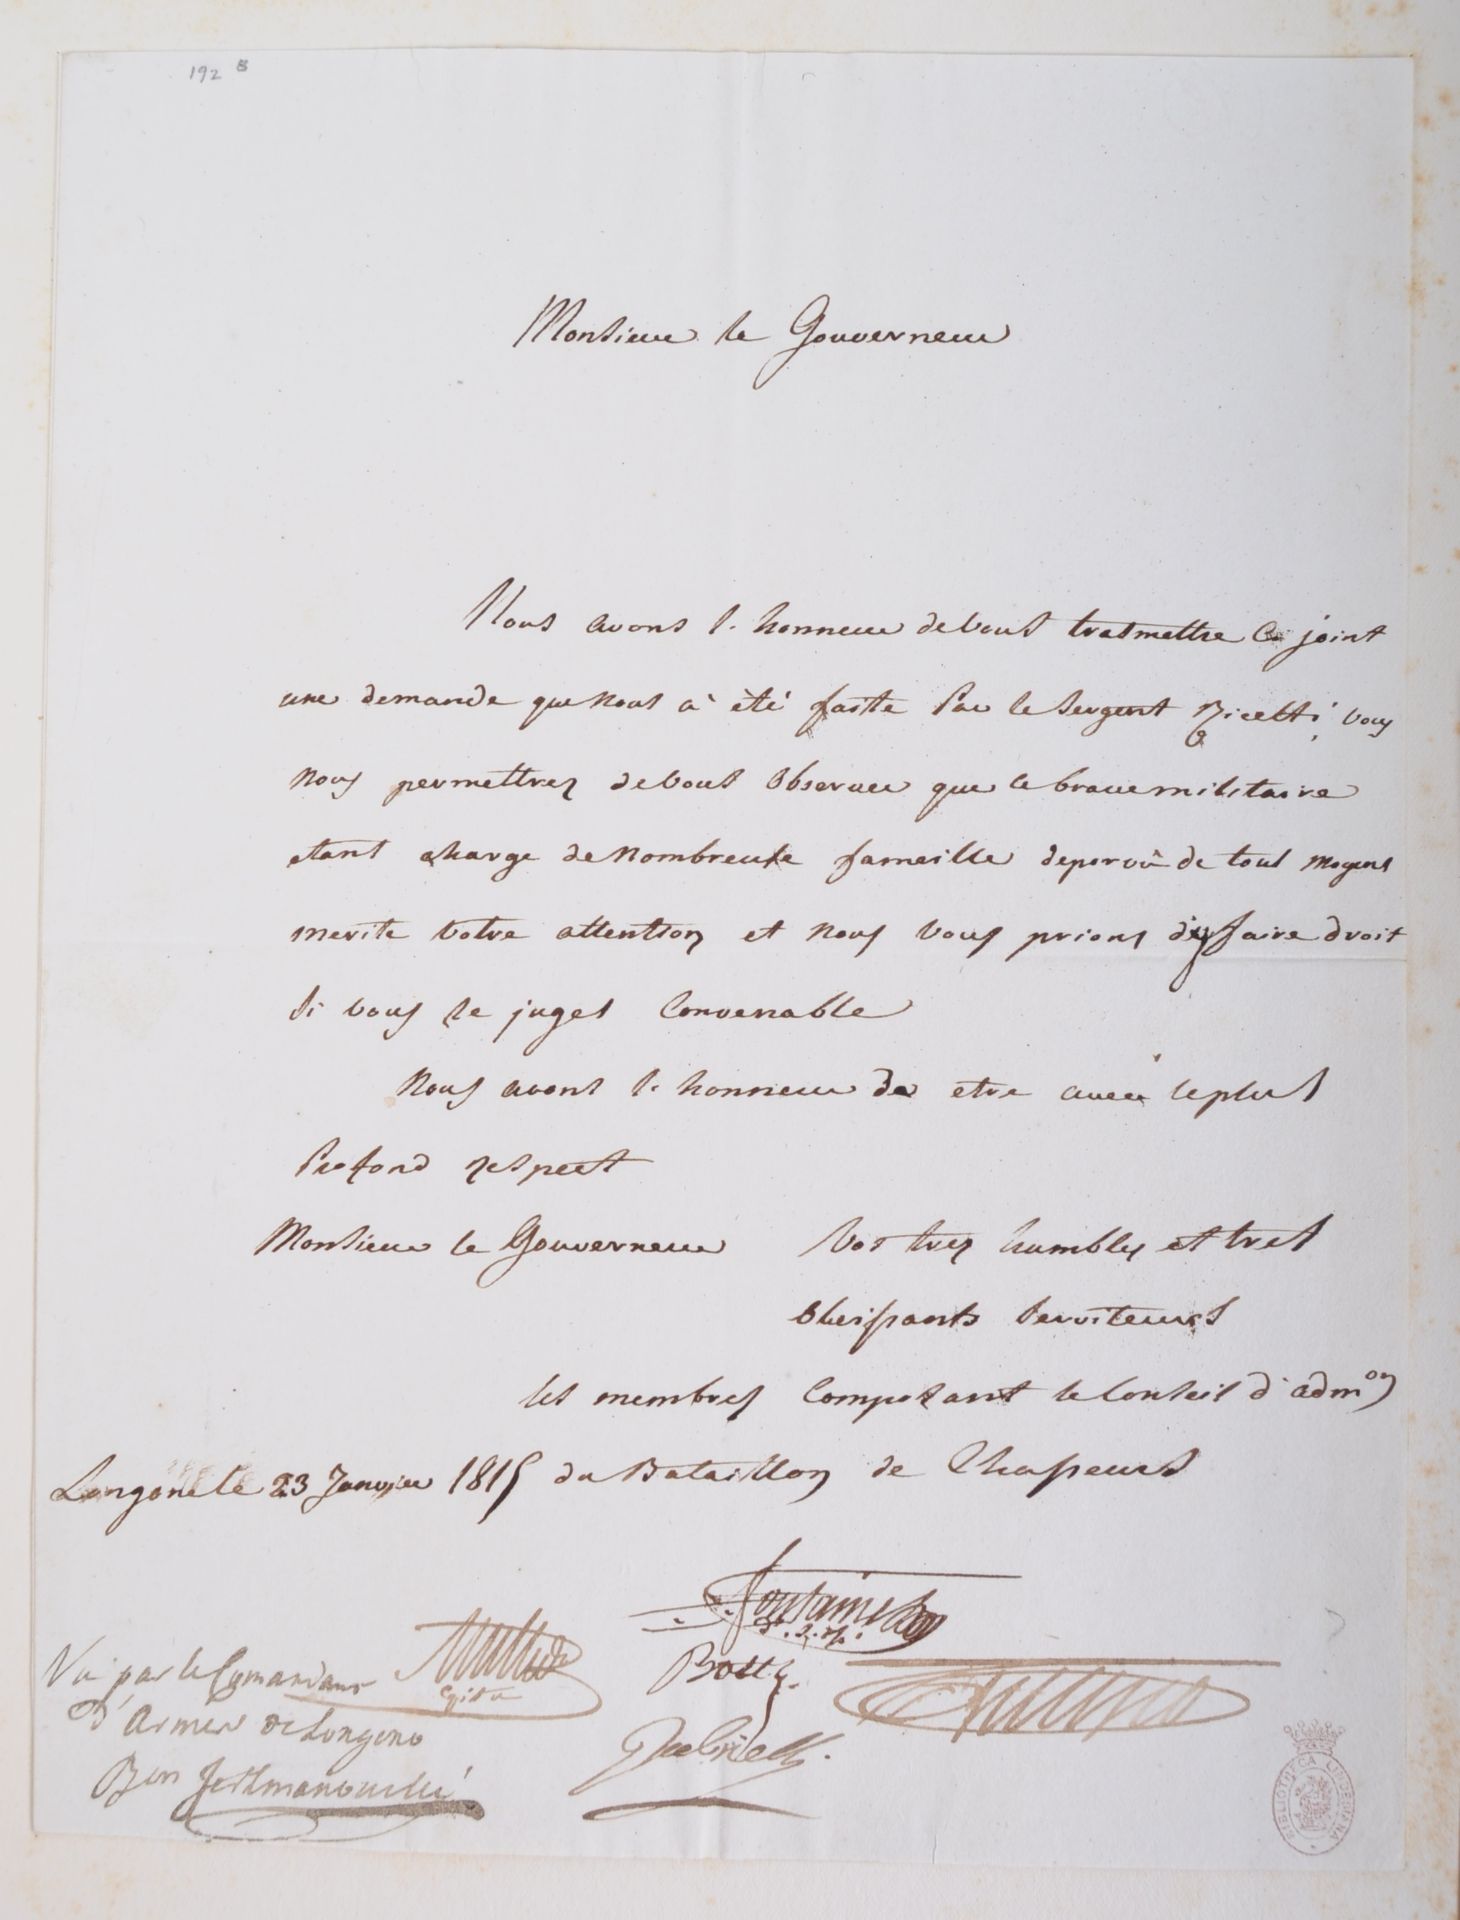 192 B
Monsieur le Gouverneur
Nous avons l. honneur de vous trasmettre Ci joint
une demande que nous à été faite Par le Sergent Ricelti, vous
nous permettrez de vous observer que ce brave militaire
etant charge de nombreuse fameille deporvû de tous moyens
merite votre attention et nous vous prions d'y faire droit
Si vous le juges Convenable
Nous avons l. honneur de etre avec le plus
Profond respect
Monsieur le Gouverneur Vos trez humbles et tres
obeissants Serviteurs
les membres Composant le Conseil d'adm.on
Longone le 23 Janvier 1815 du Bataillon de Chasseurs
Vu par le Comandant
D'Armes de Longono
Bon
BIBLIOTHECA LINDESIANA